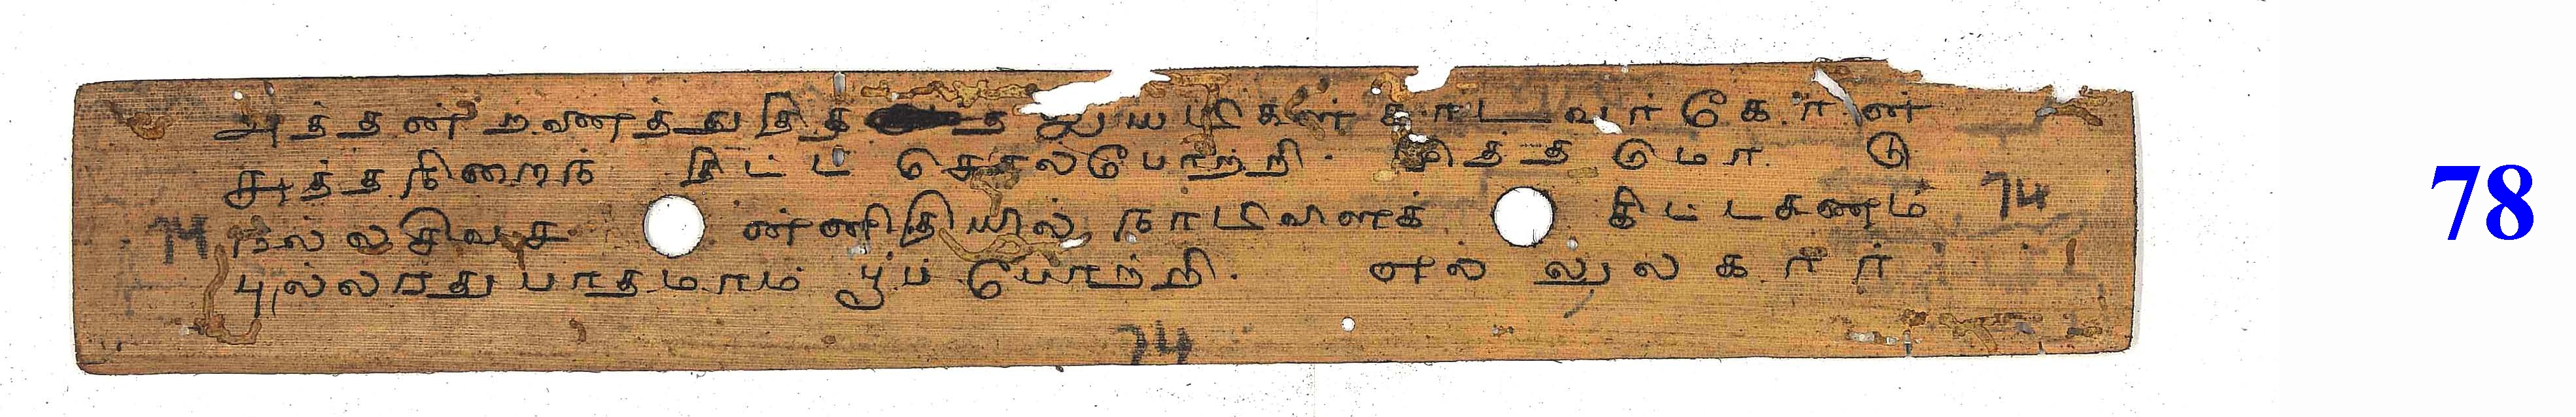 அத்தன் றணத்துதித் த ஆயடிகள் காடவர்கோன்
சுத்தநிறைந் திட்ட செசல்போற்றி. மித்தமொடு
74 நல்லசிவச ன்னிதியில் நாடிவிளக் கிட்டகணம் 74
புல்லாது பாதமாம் பூப் போற்றி. எல் லுலகார்
74
78